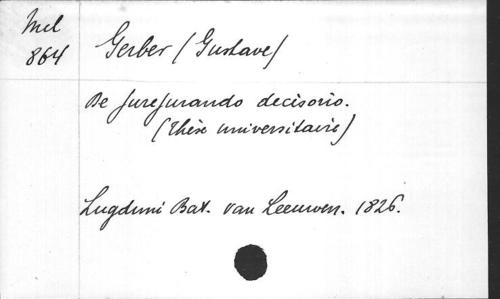 Mel
864
Gerber (Gustave)
De jurejurando decisorio.
(Thèse universitaire)
Lugduni Bat. van Leeuwen. 1826.